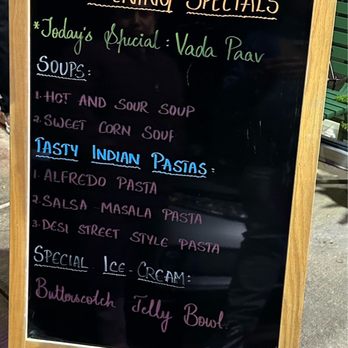 Specials
*Today's Special: Vada Paav
Soups:
1. Hot and Sour Soup
2. Sweet Corn Soup
Tasty Indian Pastas:
1. Alfredo Pasta
2. Salsa Masala Pasta
3. Desi Street Style Pasta
Special Ice-Cream:
Butterscotch Jelly Bowl.